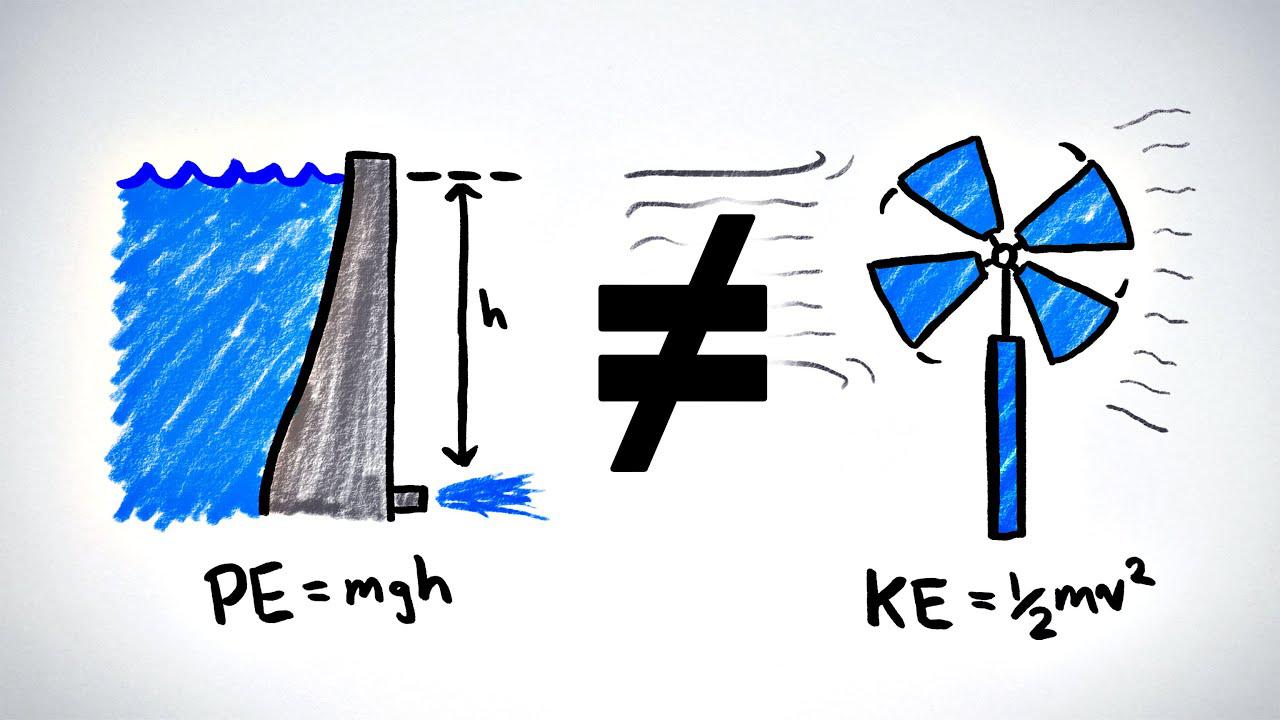 h
≠
PE = mgh
KE = ½mv²